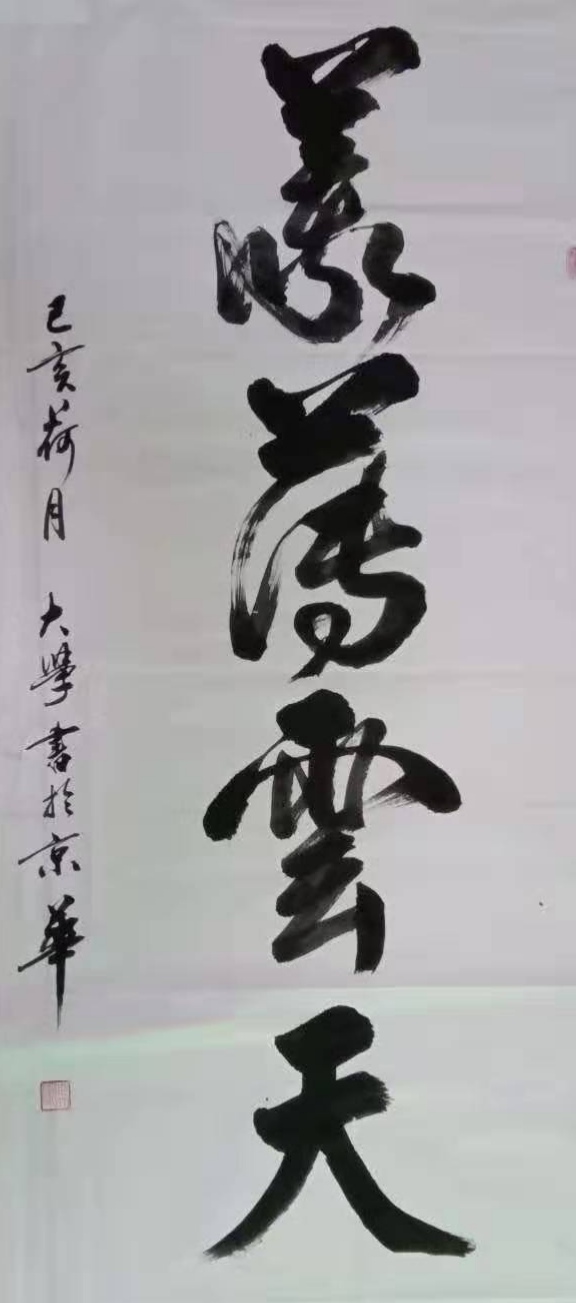 義薄雲天
己亥荷月 大學書於京華